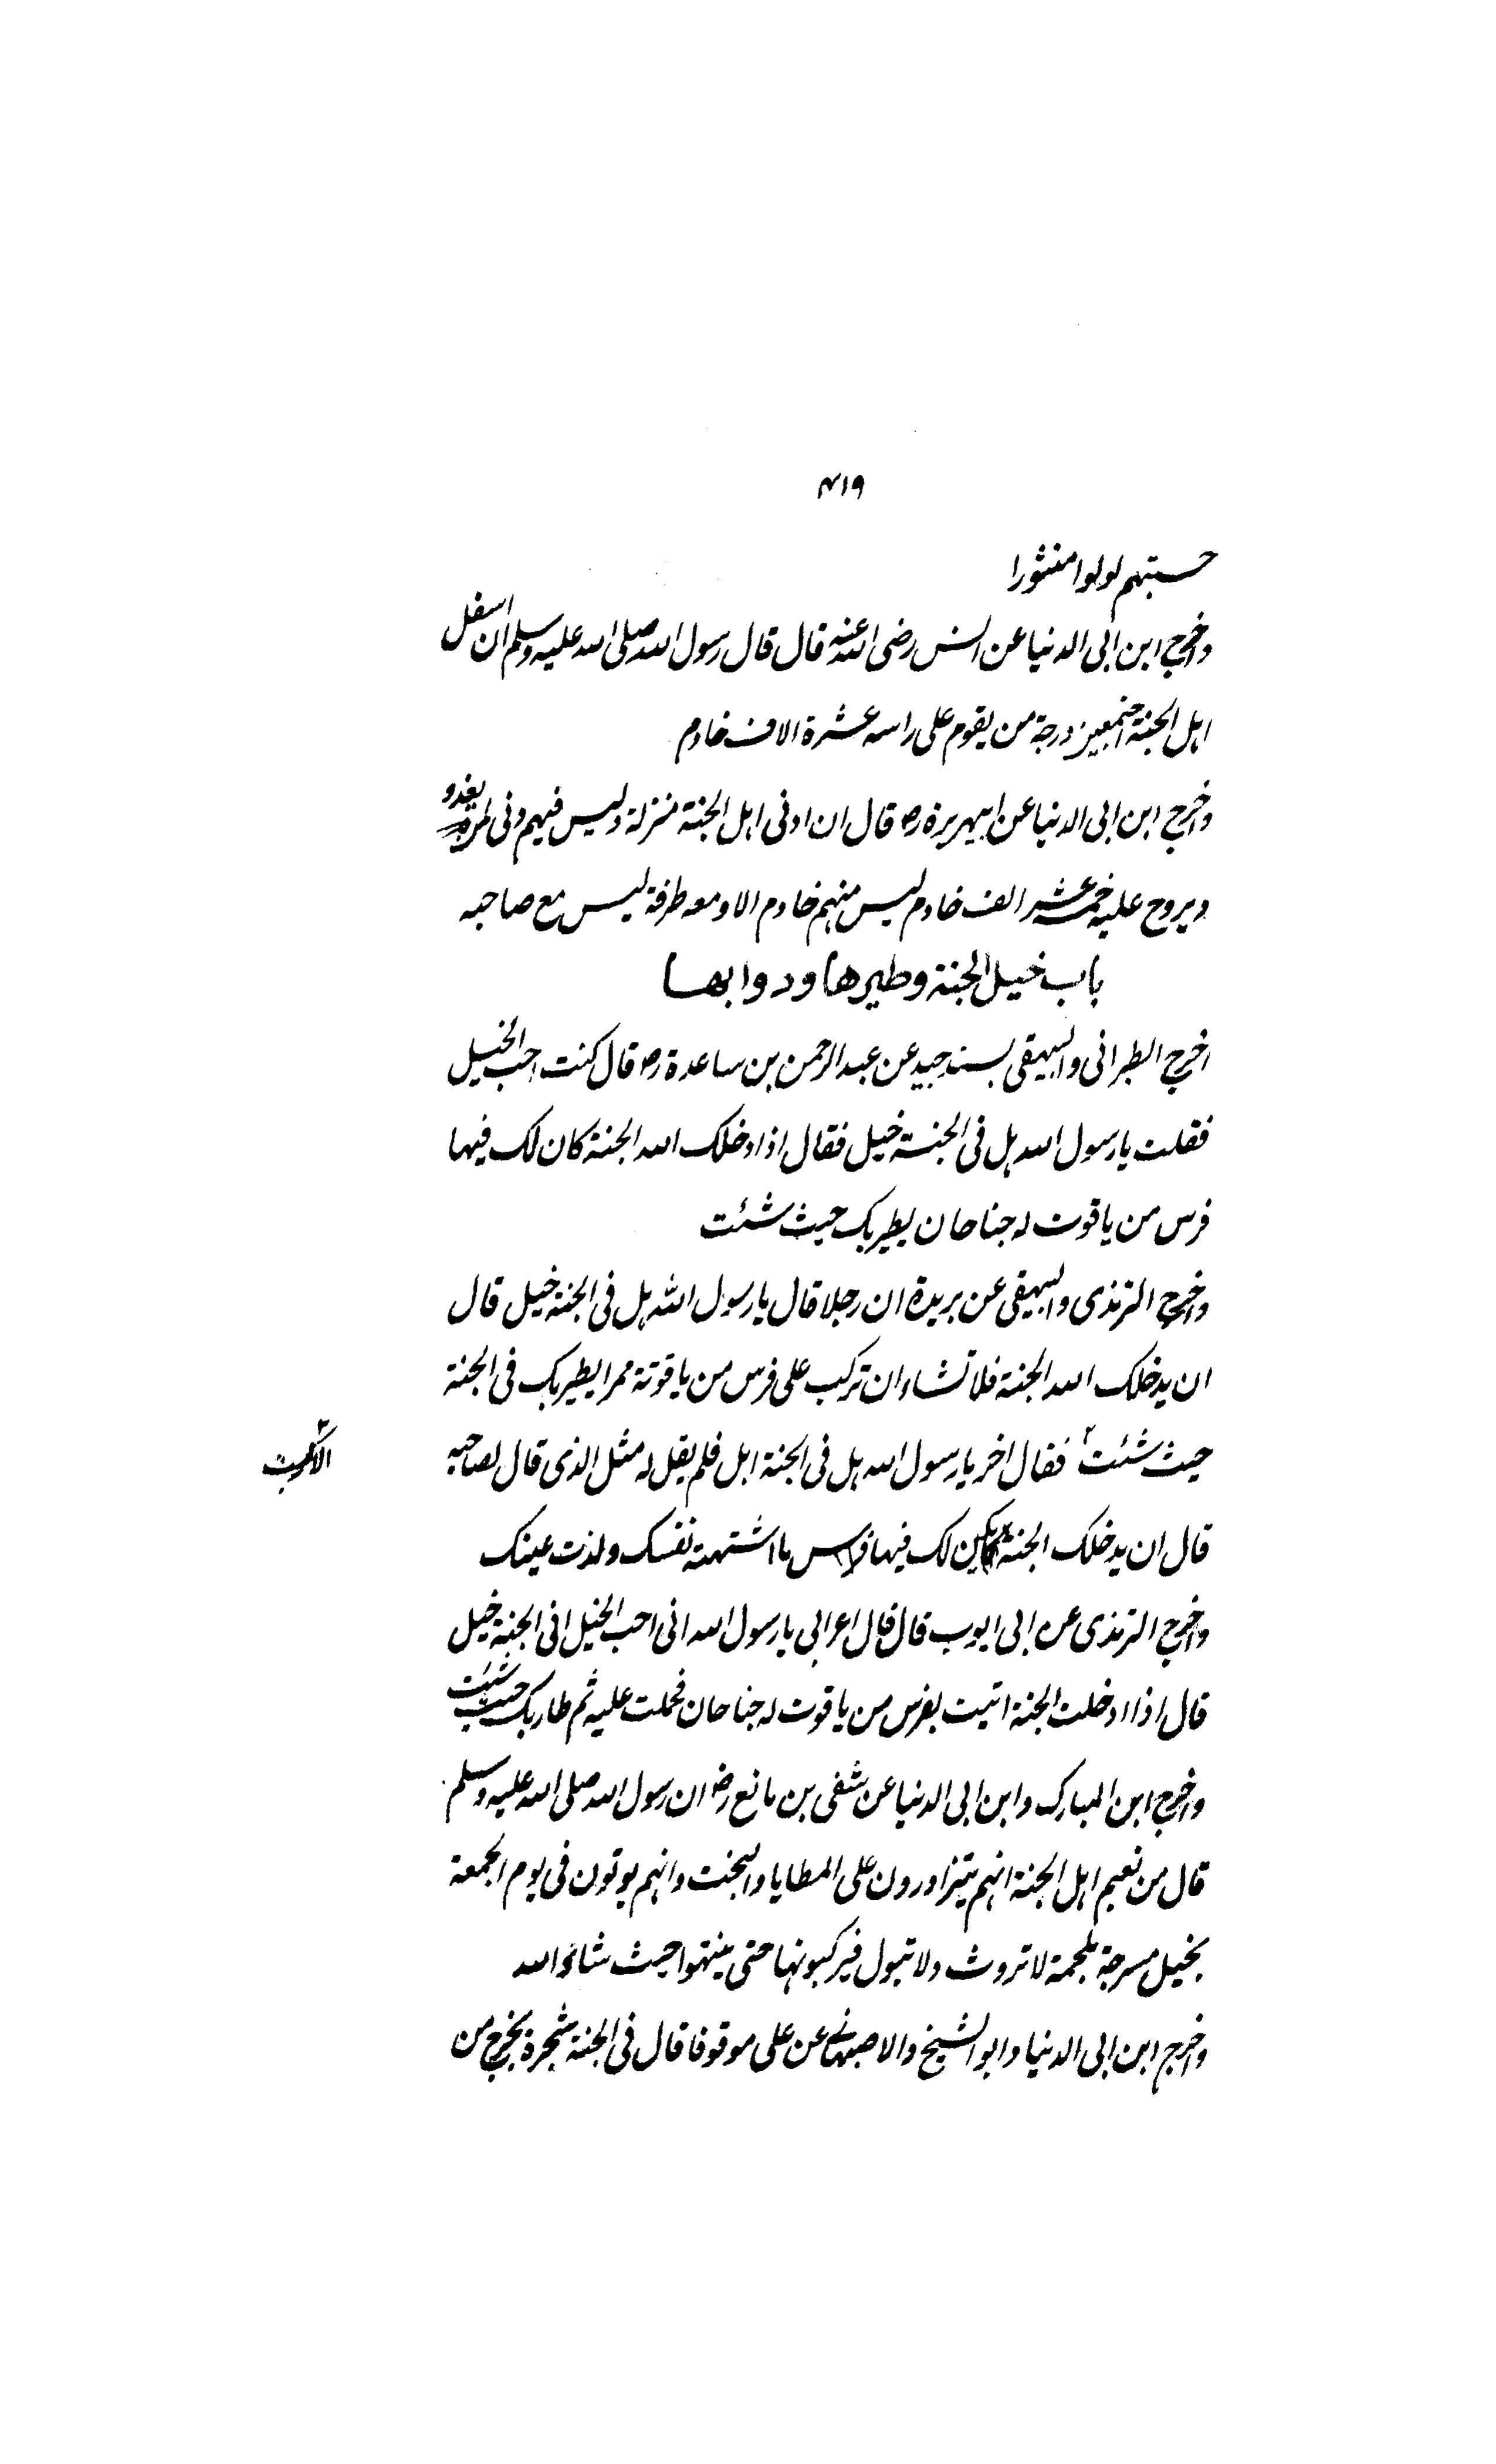 ٤١٩
حسبتهم لولوا منثورا
واخرج ابن ابی الدنیا عن انس رضی الله عنه قال قال رسول الله صلی الله علیه وسلم ان اسفل
اهل الجنة اجمعین درجة من یقوم علی راسه عشرة الاف خادم
واخرج ابن ابی الدنیا عن ابیهریرة رض قال ان ادنی اهل الجنة منزلة ولیس فیهم دنی لمن یغدو
ویروح علیه خمسة عشر الف خادم لیس منهم خادم الا ومعه طرفة لیس مع صاحبه
باب خیل الجنة وطیرها ودوابها
اخرج الطبرانی والبیهقی بسند جید عن عبد الرحمن بن ساعدة رض قال کنت احب الخیل
فقلت یا رسول الله هل فی الجنة خیل فقال اذا ادخلک الله الجنة کان لک فیها
فرس من یاقوت له جناحان یطیر بک حیث شئت
واخرج الترمذی والبیهقی عن بریدة ان رجلا قال یا رسول الله هل فی الجنة خیل قال
ان یدخلک الله الجنة فلا تشاء ان ترکب علی فرس من یاقوتة حمرا یطیر بک فی الجنة
حیث شئت فقال اخر یا رسول الله هل فی الجنة ابل فلم یقل له مثل الذی قال لصاحبه
الا رکبت
قال ان یدخلک الجنة یکن لک فیها ما اشتهته نفسک ولذت عینک
واخرج الترمذی عن ابی ایوب قال قال اعرابی یا رسول الله انی احب الخیل افی الجنة خیل
قال اذا ادخلت الجنة اتیت بفرس من یاقوت له جناحان فحملت علیه ثم طار بک حیث شئت
واخرج ابن المبارک وابن ابی الدنیا عن شفی بن مانع رض ان رسول الله صلی الله علیه وسلم
قال من نعیم اهل الجنة انهم یتزاورون علی المطایا والبخت وانهم یوتون فی یوم الجمعة
بخیل مسرجة ملجمة لا تروث ولا تبول فیرکبونها حتی ینتهوا حیث شاء الله
واخرج ابن ابی الدنیا وابو الشیخ والاصبهانی عن علی موقوفا قال فی الجنة شجرة یخرج من